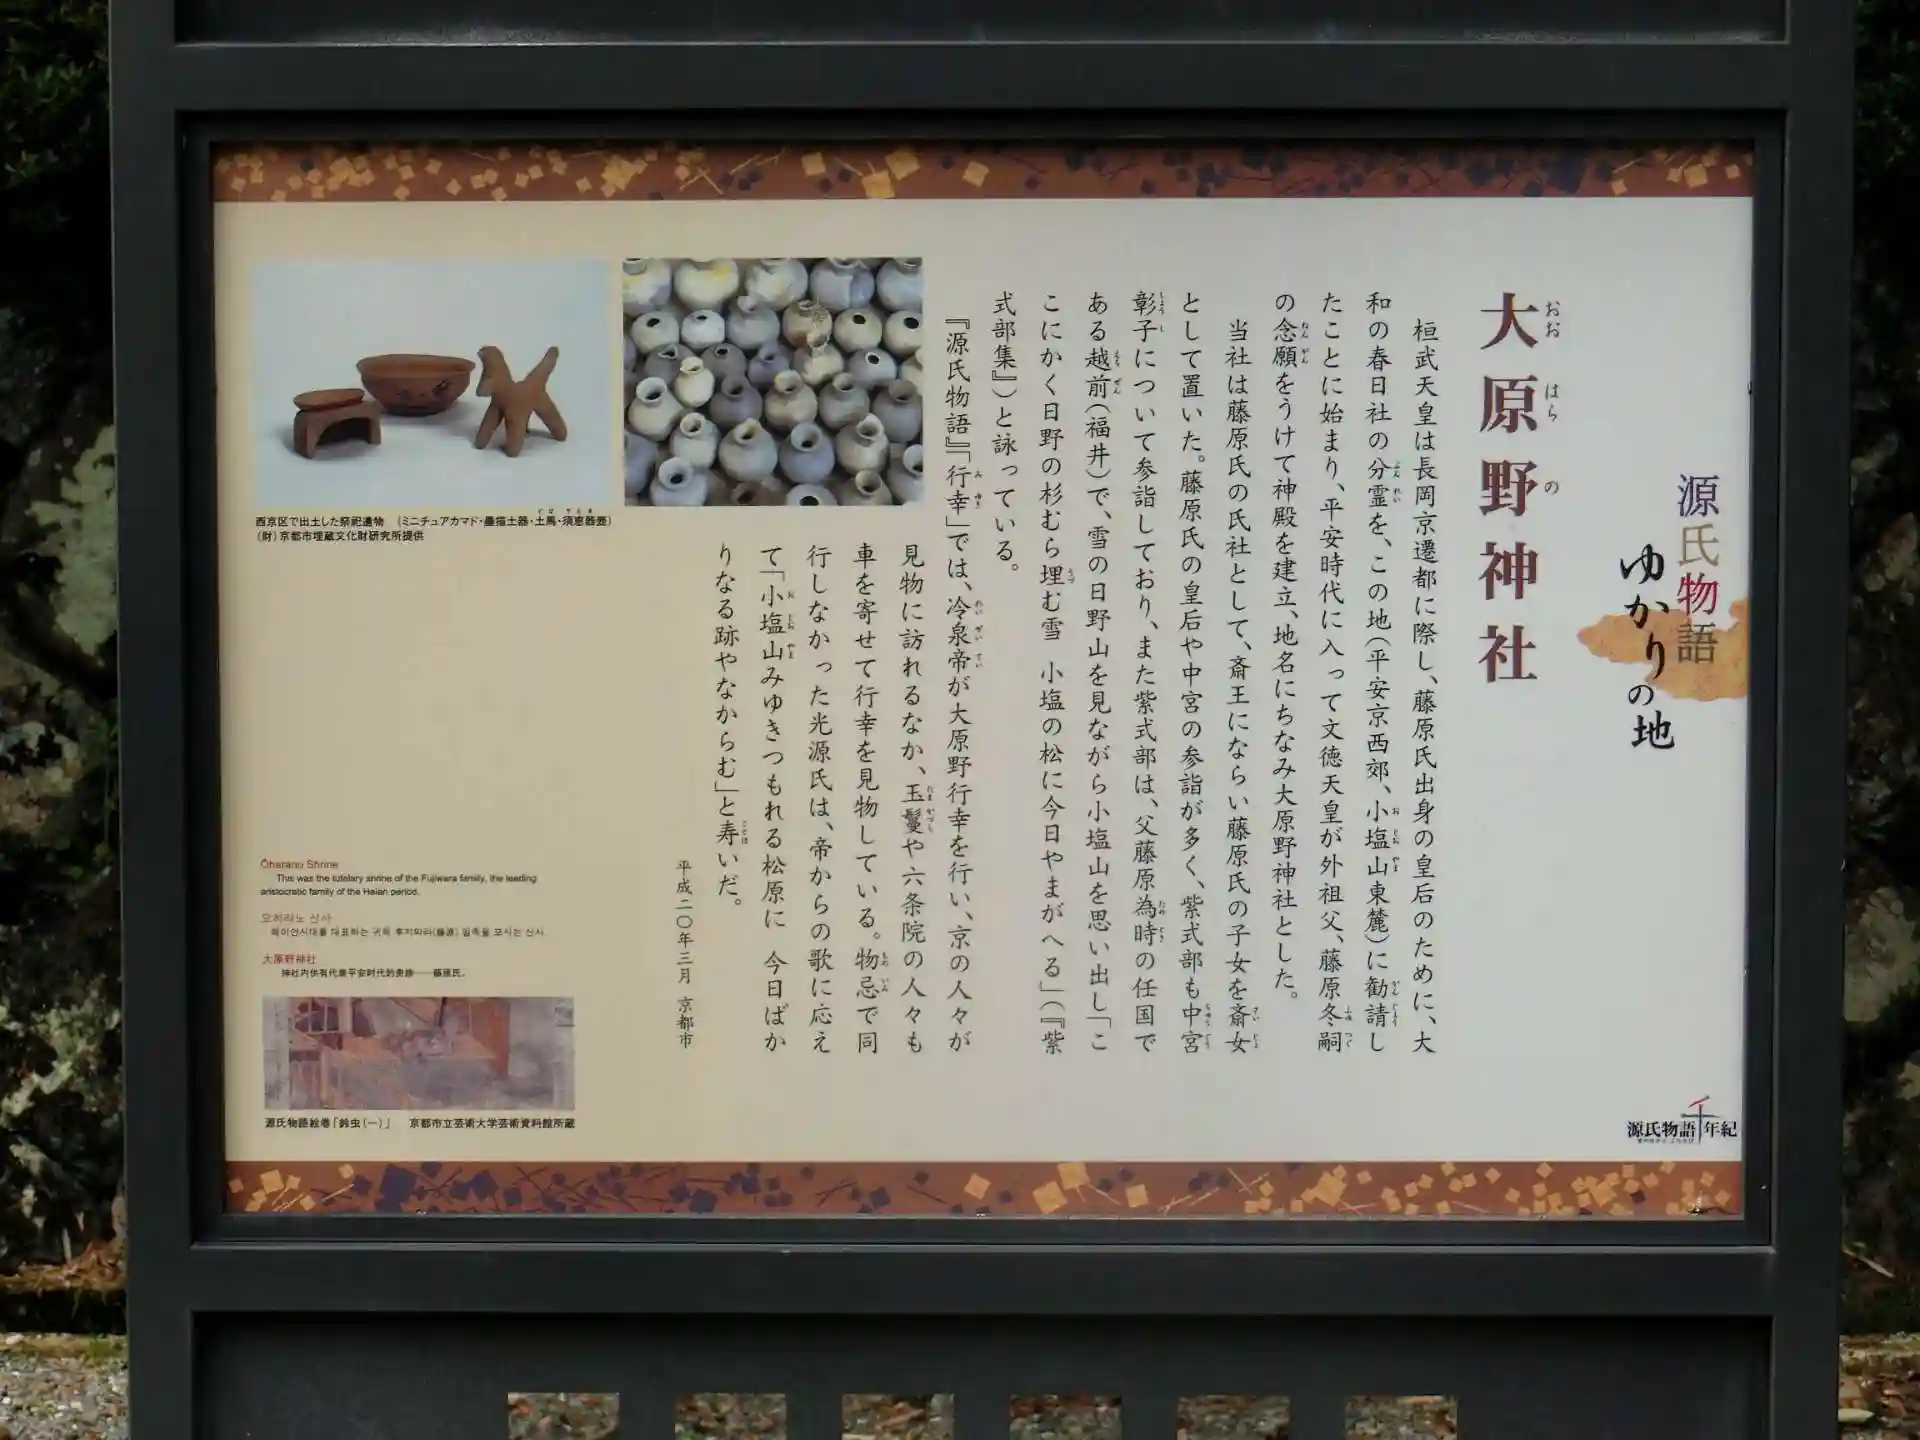 源氏物語
ゆかりの地
大原野神社
おおはらの
桓武天皇は長岡京遷都に際し、藤原氏出身の皇后のために、大
和の春日社の分霊を、この地(平安京西郊、小塩山東麓)に勧請し
たことに始まり、平安時代に入って文徳天皇が外祖父、藤原冬嗣
の念願をうけて神殿を建立、地名にちなみ大原野神社とした。
当社は藤原氏の氏社として、斎王にならい藤原氏の子女を斎女
として置いた。藤原氏の皇后や中宮の参詣が多く、紫式部も中宮
彰子について参詣しており、また紫式部は、父藤原為時の任国で
ある越前(福井)で、雪の日野山を見ながら小塩山を思い出し「こ
こにかく日野の杉むら埋む雪 小塩の松に今日やまがへる」(『紫
式部集』)と詠っている。
『源氏物語』「行幸」では、冷泉帝が大原野行幸を行い、京の人々が
見物に訪れるなか、玉鬘や六条院の人々も
車を寄せて行幸を見物している。物忌で同
行しなかった光源氏は、帝からの歌に応え
て「小塩山みゆきつもれる松原に 今日ばか
りなる跡やなからむ」と寿いだ。
平成二〇年三月 京都市
西京区で出土した祭祀遺物 (ミニチュアカマド・墨描土器・土馬・須恵器壺)
(財)京都市埋蔵文化財研究所提供
Ōharano Shrine
This was the tutelary shrine of the Fujiwara family, the leading
aristocratic family of the Heian period.
오하라노 신사
헤이안시대를 대표하는 귀족 후지와라(藤原) 일족을 모시는 신사.
大原野神社
神社内供有代表平安时代的贵族——藤原氏。
源氏物語絵巻「鈴虫(一)」 京都市立芸術大学芸術資料館所蔵
源氏物語千年紀